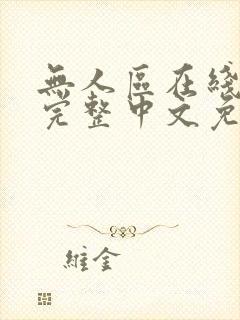 無人區在綫
完整中文免
維金